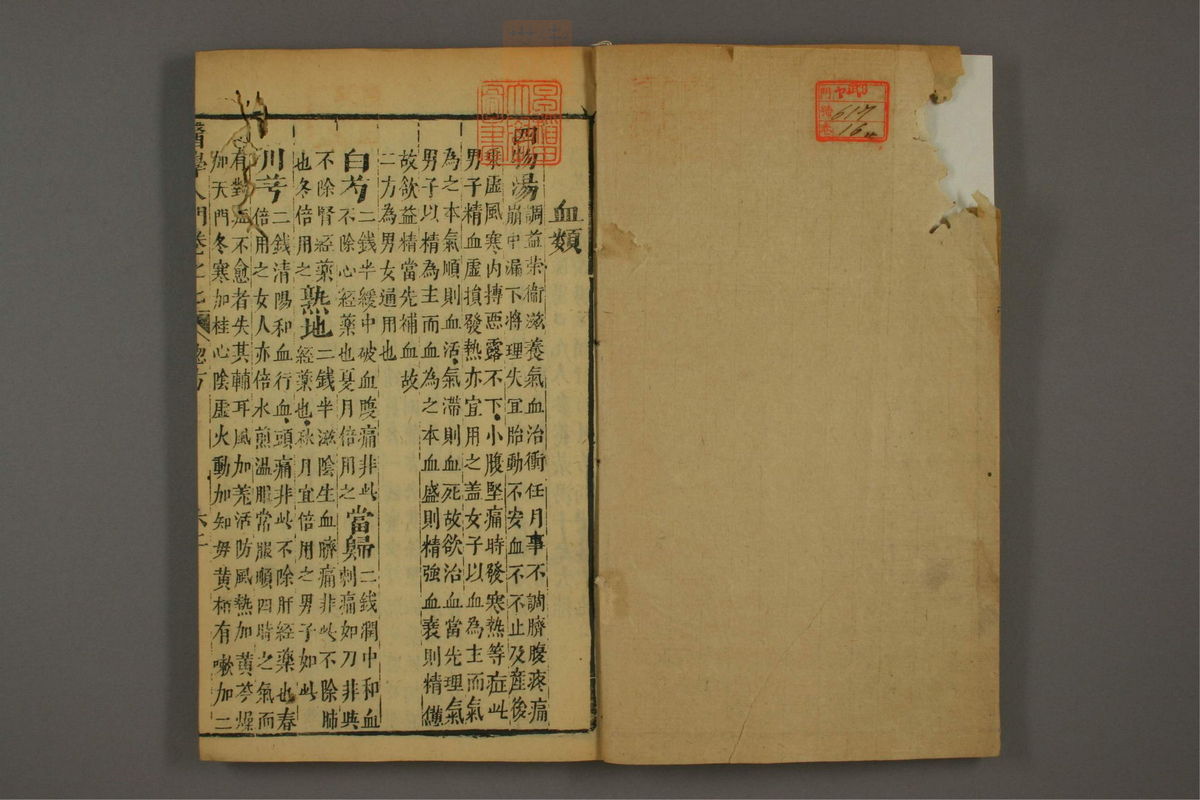 血類
四物湯調益荣衞滋養氣血治衝任月事不調臍腹疼痛
崩中漏下將理失宜胎動不安血不不止及産後
乘虛風寒内搏惡露不下小腹堅痛時發寒熱等症此
男子精血虛損發熱亦宜用之盖女子以血為主而氣
為之本氣順則血活氣滯則血死故欲治血當先理氣
男子以精為主而血為之本血盛則精強血衰則精憊
故欲益精當先補血故
二方為男女通用也
白芍二錢半緩中破血腹痛非此
不除心經藥也夏月倍用之
當歸二錢潤中和血
刺痛如刀非與
不除腎經藥
熟地二錢半滋陰生血臍痛非此不除肺
也冬倍用之
經藥也秋月宜倍用之男子如此
川芎二錢清陽和血行血頭痛非此不除肝經藥也春
倍用之女人亦倍水煎温服常服順四時之氣而
有對不愈者失其輔耳風加羗活防風熱加黄芩燥
加天門冬寒加桂心陰虛火動加知毋黄栢有嗽加二
醫學入門卷之七
總方
門
號
卷
617
16